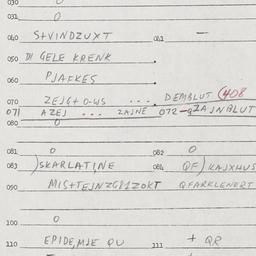 030
031 0
040 S+VINDZUXT 041 —
050 DI GELE KRENK
060 PJAFKES
070 ZEJG+O-WS ... DEMBLUT (408
071 A ZEJ ... ZAJNE 072 ZAJNBLUT
080 0
081 0 082 0
083 )SKARLATINE 084 QF) KAJXHUS
090 MIS+TEJNZG121ZOKT QFARKLENERT
100 0
110 EPIDE,MJE QU 111 + QR